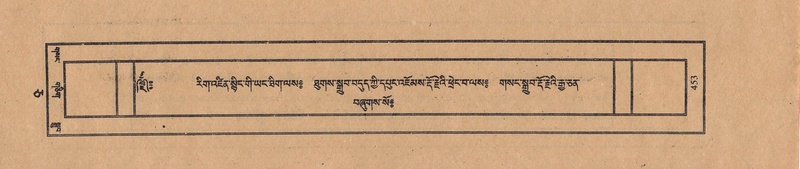 རིག་འཛིན་སྙིང་གི་ཡང་ཐིག་ལས༔ ཐུགས་སྒྲུབ་བདུད་ཀྱི་དཔུང་འཇོམས་རྡོ་རྗེའི་ཕྲེང་བ་ལས༔ གསང་སྒྲུབ་རྡོ་རྗེའི་རྒྱ་ཅན
བཞུགས་སོ༔
453